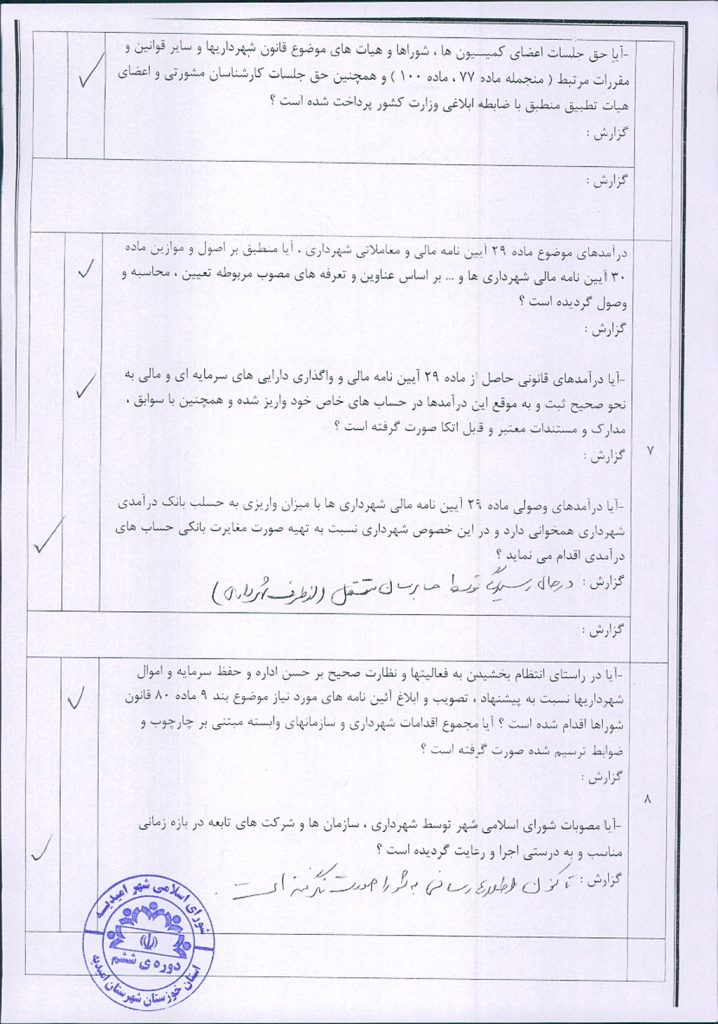 -آیا حق جلسات اعضای کمیسیون ها ، شوراها و هیات های موضوع قانون شهرداریها و سایر قوانین و
مقررات مرتبط ( منجمله ماده ۷۷ ، ماده ۱۰۰ ) و همچنین حق جلسات کارشناسان مشورتی و اعضای
هیات تطبیق منطبق با ضابطه ابلاغی وزارت کشور پرداخت شده است ؟
گزارش :
گزارش :
درآمدهای موضوع ماده ۲۹ آیین نامه مالی و معاملاتی شهرداری ، آیا منطبق بر اصول و موازین ماده
۳۰ آیین نامه مالی شهرداری ها و ... بر اساس عناوین و تعرفه های مصوب مربوطه تعیین ، محاسبه و
وصول گردیده است ؟
گزارش :
-آیا درآمدهای قانونی حاصل از ماده ۲۹ آیین نامه مالی و واگذاری دارایی های سرمایه ای و مالی به
نحو صحیح ثبت و به موقع این درآمدها در حساب های خاص خود واریز شده و همچنین با سوابق ،
مدارک و مستندات معتبر و قابل اتکا صورت گرفته است ؟
۷
گزارش :
-آیا درآمدهای وصولی ماده ۲۹ آیین نامه مالی شهرداری ها با میزان واریزی به حسلب بانک درآمدی
شهرداری همخوانی دارد و در این خصوص شهرداری نسبت به تهیه صورت مغایرت بانکی حساب های
درآمدی اقدام می نماید ؟
گزارش : در حال رسیدگی توسط حسابرسان مستقل (از طرف شهرداری)
گزارش :
-آیا در راستای انتظام بخشیدن به فعالیتها و نظارت صحیح بر حسن اداره و حفظ سرمایه و اموال
شهرداریها نسبت به پیشنهاد ، تصویب و ابلاغ آئین نامه های مورد نیاز موضوع بند ۹ ماده ۸۰ قانون
شوراها اقدام شده است ؟ آیا مجموع اقدامات شهرداری و سازمانهای وابسته مبتنی بر چارچوب و
ضوابط ترسیم شده صورت گرفته است ؟
گزارش :
۸
-آیا مصوبات شورای اسلامی شهر توسط شهرداری ، سازمان ها و شرکت های تابعه در بازه زمانی
مناسب و به درستی اجرا و رعایت گردیده است ؟
گزارش : تا کنون اطلاع رسانی به شورا صورت نگرفته است .
شورای اسلامی شهر امیدیه
دوره ی ششم
استان خوزستان شهرستان امیدیه